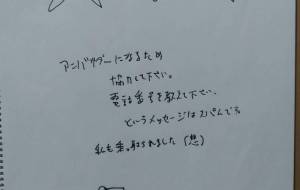 アンバサダーになるため
協力して下さい。
電話番号を教えて下さい、
というメッセージはスパムです。
私も乗っ取られました(怒)